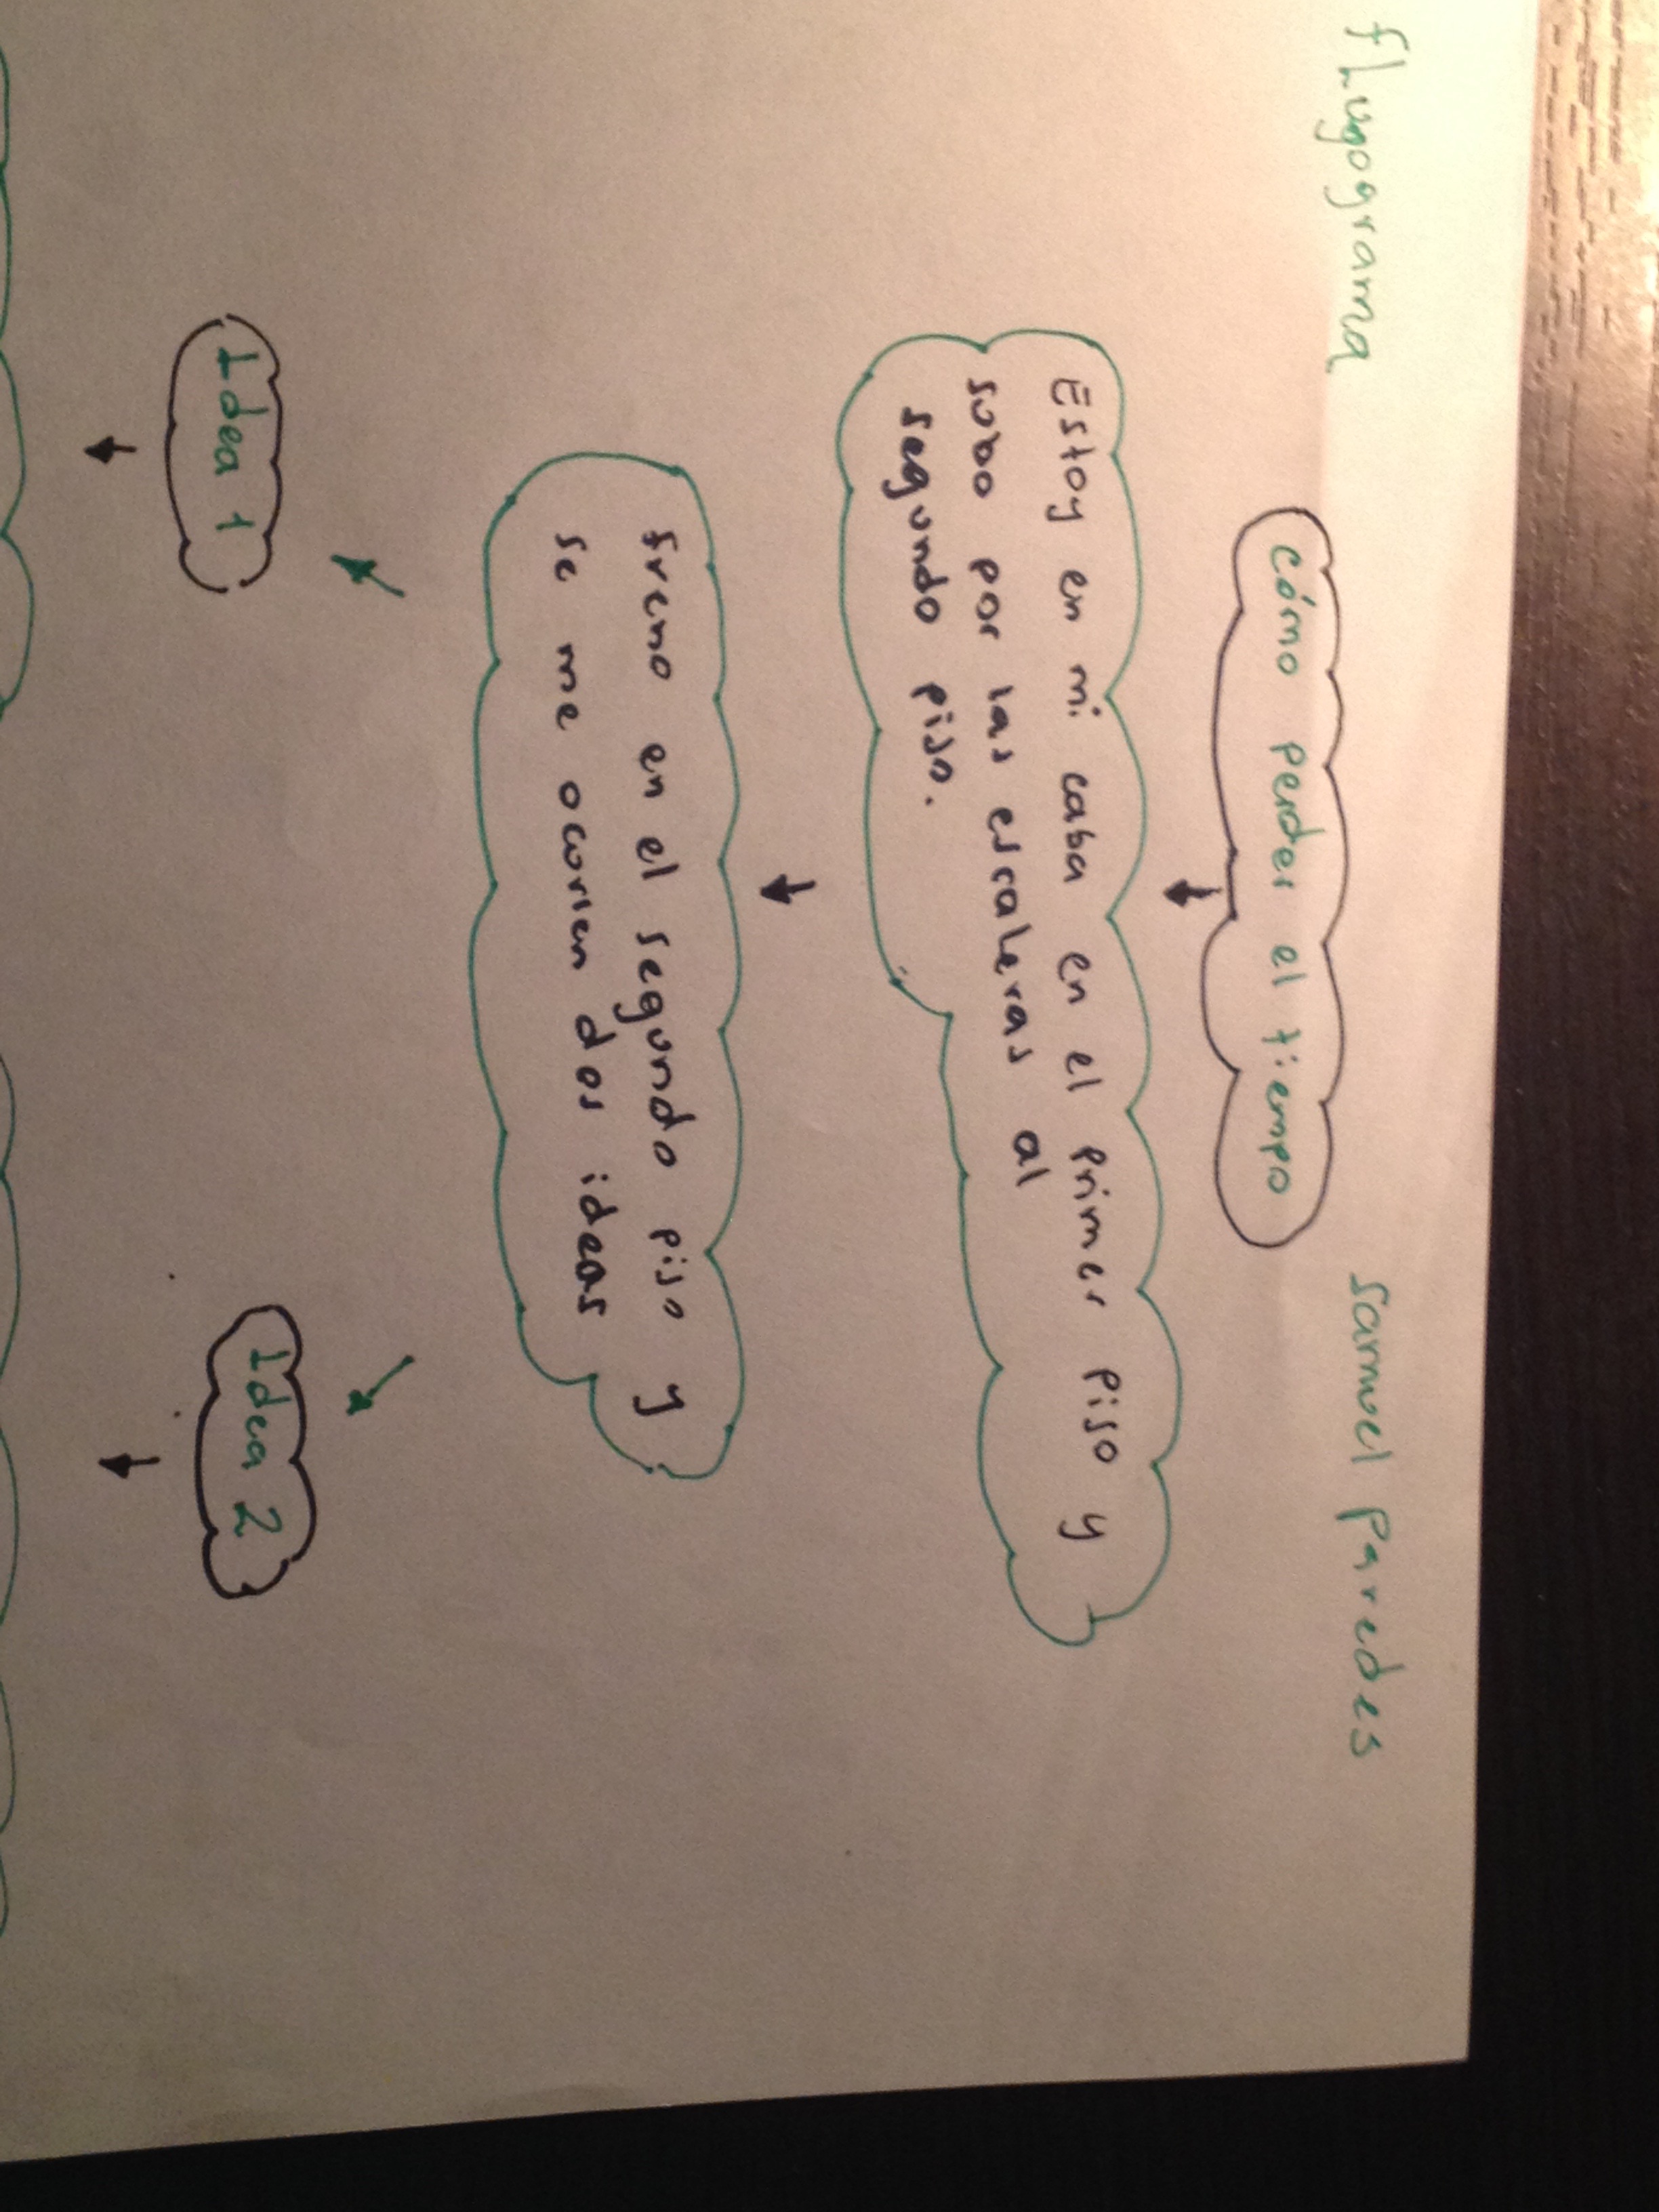 fLugograma
Samuel Paredes
Cómo perder el tiempo
Estoy en mi caba en el primer piso y
subo por las escaleras al
segundo piso.
freno en el segundo piso y
se me ocurren dos ideas
Idea 1
Idea 2